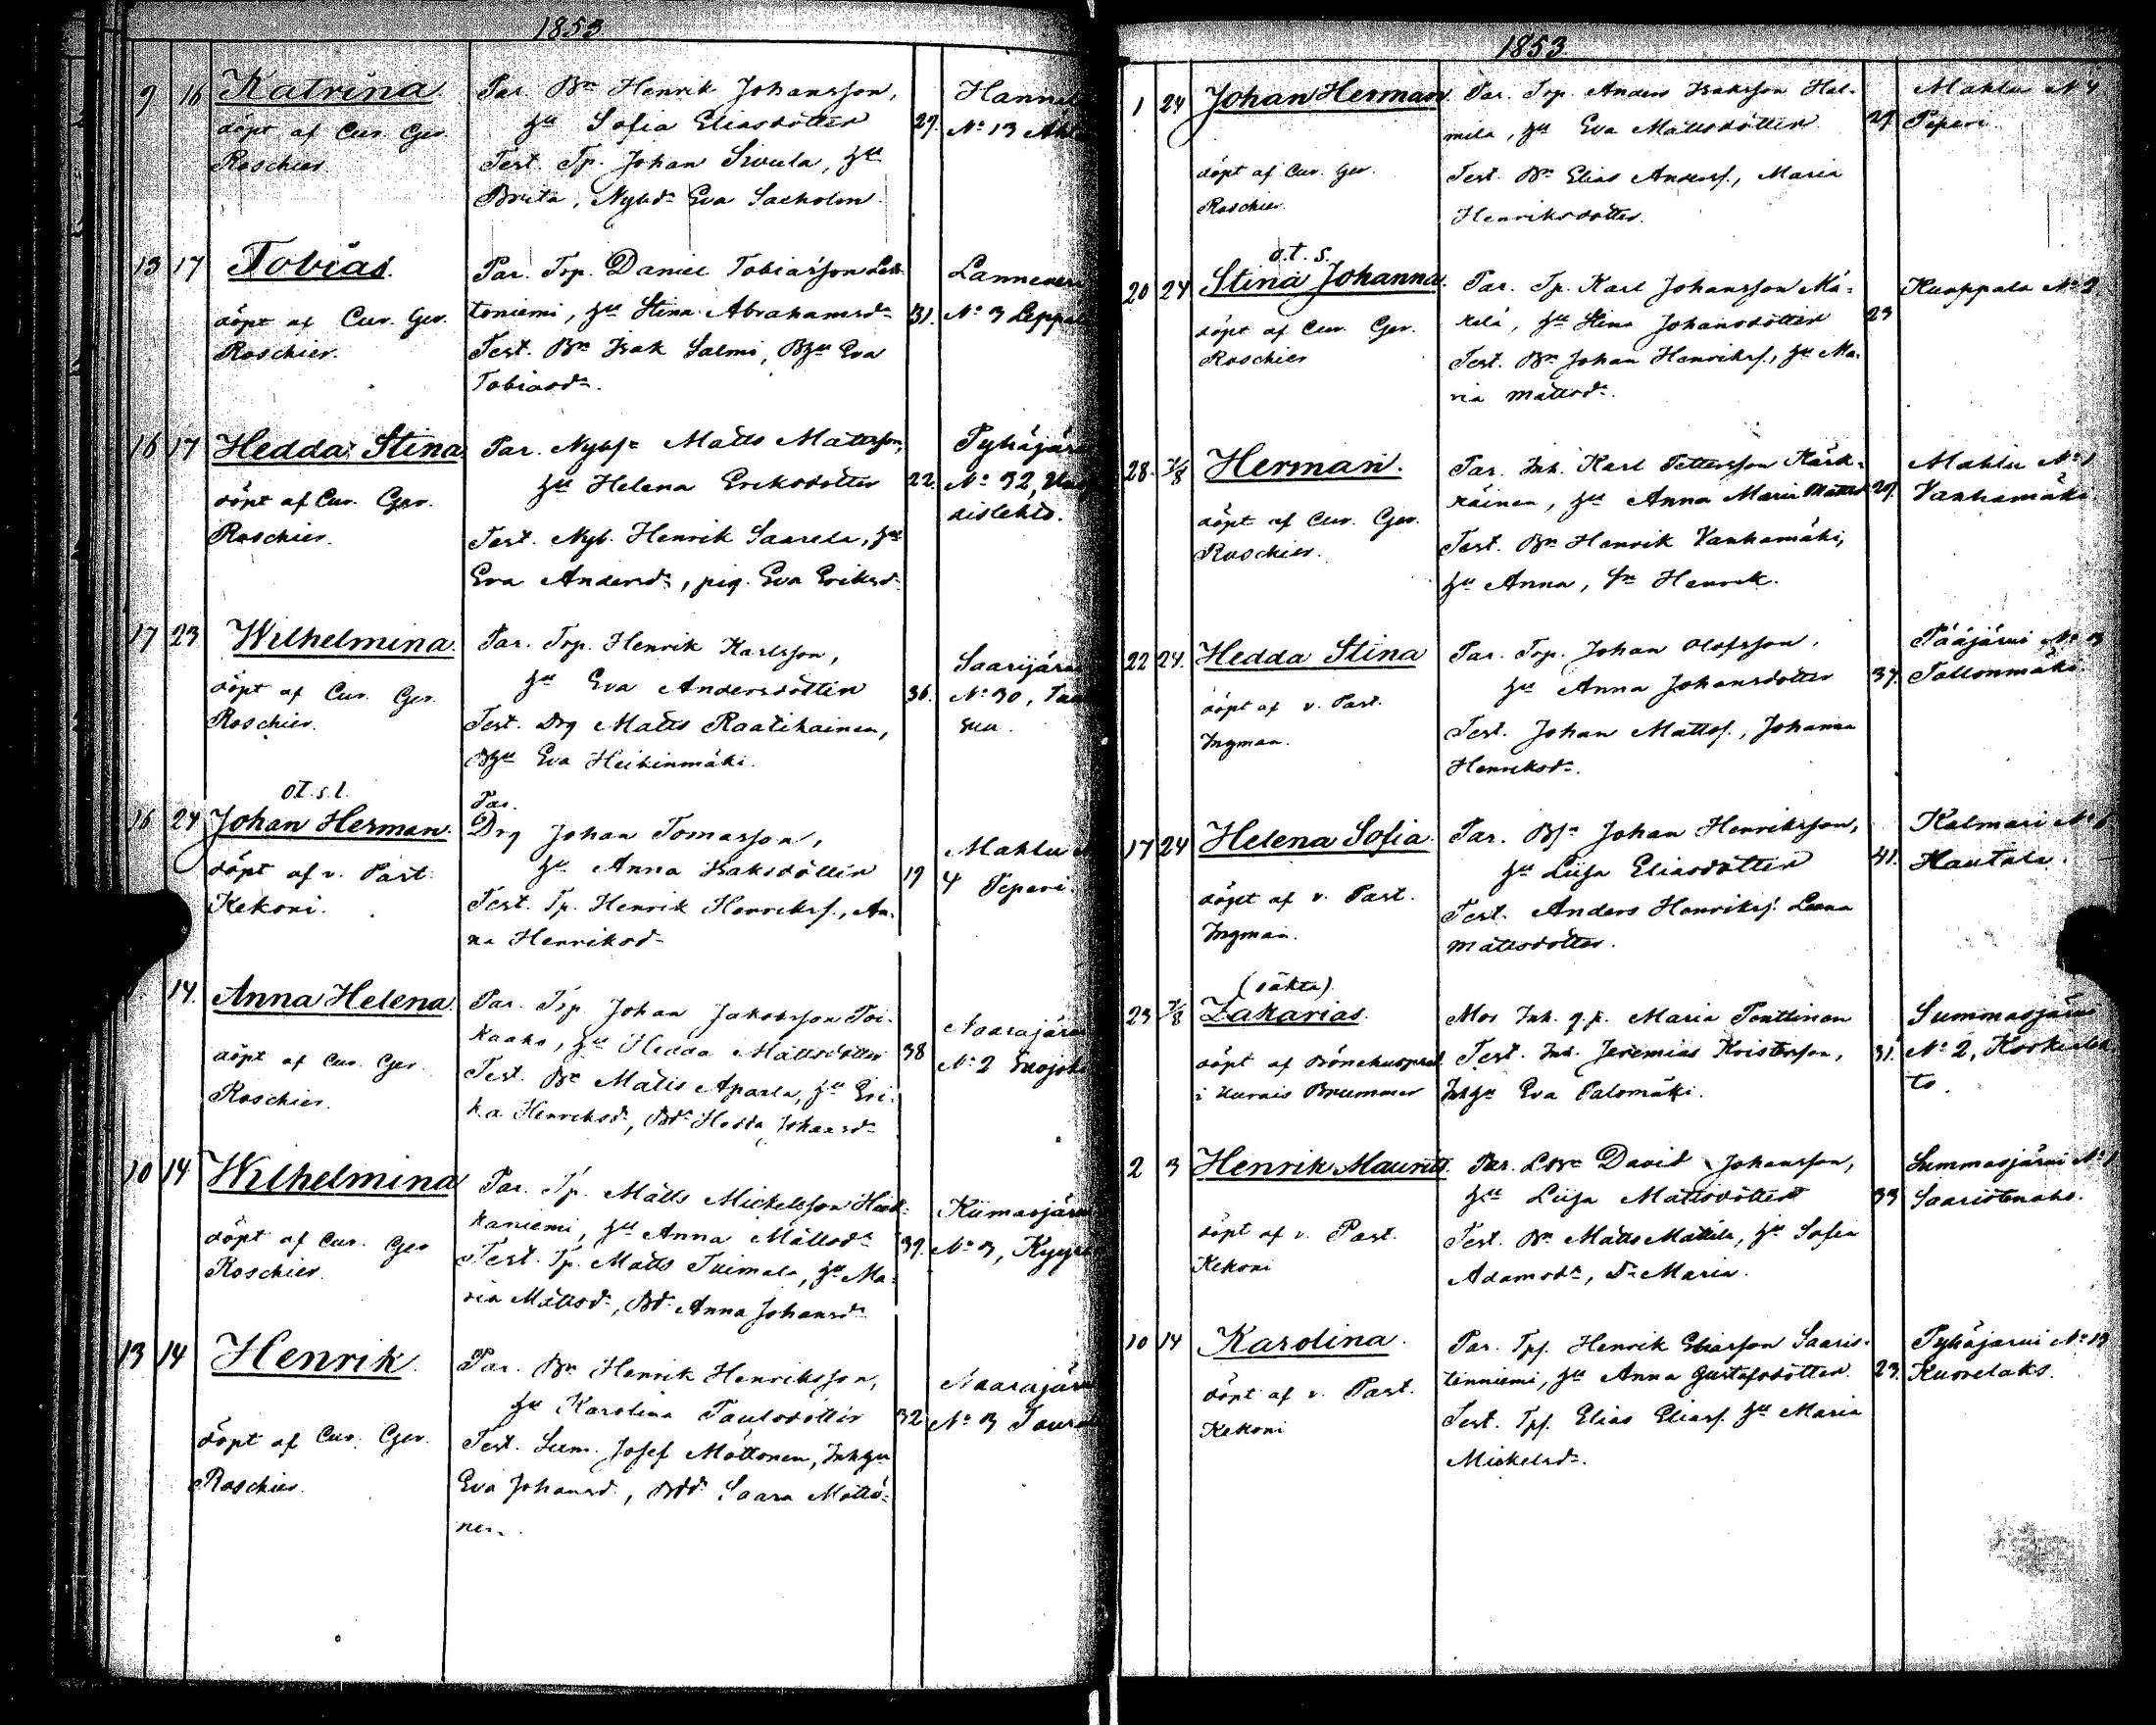 1853
9 16 Katrina
döpt af Cur. Ger.
Roschier.
Par. Bn Henrik Johansson,
hu Sofia Eliasdotter
Test. Tp. Johan Sivula, hu
Brita, Nybd. Eva Sacholm
27.
Hannul
No 13
13 17 Tobias.
döpt af Cur. Ger.
Roschier.
Par. Trp. Daniel Tobiasson Leh-
toniemi, hu Stina Abrahamsdr
Test. Bn Isak Salmi, Bhu Eva
Tobiasdr.
31.
Lannevesi
No 3 Leppäl
16 17 Hedda Stina
döpt af Cur. Ger.
Roschier.
Par. Nybsn Matts Mattsson,
hu Helena Eriksdotter
Test. Nyb. Henrik Saarela, hu
Eva Andersdr, pig. Eva Eriksdr
22.
Pyhäjär
No 32,
aislehto.
17 23 Wilhelmina.
döpt af Cur. Ger.
Roschier.
Par. Trp. Henrik Karlsson,
hu Eva Andersdotter
Test. Drg Matts Raatikainen,
Bhu Eva Heikinmäki.
36.
Saarijärvi
No 30,
o.t.s.l.
16 24 Johan Herman.
döpt af v. Past.
Kekoni.
Par.
Drg Johan Tomasson,
hu Anna Isaksdotter
Test. Tp. Henrik Henrikss., An-
na Henriksdr
19
Mahlu N
4 Peperi
14. Anna Helena.
döpt af Cur. Ger.
Roschier.
Par. Trp Johan Jakobsson Poi-
kaaho, hu Hedda Mattsdotter
Test. Bn Matts Aparla, hu Eri-
ka Henriksdr, Bdr Hedda Johansdr
38
Naarajärvi
No 2
10 14 Wilhelmina
döpt af Cur. Ger
Roschier.
Par. Tp. Matts Mickelsson
kaniemi, hu Anna Mattsdr
Test. Tp. Matts Tuimala, hu Ma-
ria Mattsdr, Bdr Anna Johansdr
39.
Kiimasjärvi
No 3,
13 14 Henrik.
döpt af Cur. Ger.
Roschier.
Par. Bn Henrik Henriksson,
hu Karolina Paulsdotter
Test. Sum. Josef Möttönen, Inhhu
Eva Johansd., Bdr Saara Möttö-
nen.
32
Naarajär
No 3
1853
1 24 Johan Herman.
döpt af Cur. Ger.
Roschier.
Par. Trp. Anders Isaksson Hal-
mela, hu Eva Mattsdotter
Test. Bn Elias Anderss., Maria
Henriksdotter.
27.
Mahlu No 4
Peperi.
o.t.s.
20 24 Stina Johanna.
döpt af Cur. Ger.
Roschier
Par. Tp. Karl Johansson Mä-
kelä, hu Stina Johansdotter
Test. Bn Johan Henrikss., hu Ma-
ria Mattsdr.
23
Kuoppala No 2
28. 7/8 Herman.
döpt af Cur. Ger.
Roschier.
Par. Inh. Karl Pettersson Kärk-
käinen, hu Anna Maria Mattsd
Test. Bn Henrik Vanhamäki,
hu Anna, Sn Henrik.
27.
Mahlu No 1
Vanhamäki
22 24. Hedda Stina
döpt af v. Past.
Ingman.
Par. Trp. Johan Olofsson,
hu Anna Johansdotter
Test. Johan Mattss., Johanna
Henriksdr.
37.
Pääjärvi No 13
Pollonmäki
17 24 Helena Sofia.
döpt af v. Past.
Ingman.
Par. Bsn Johan Henriksson,
hu Liisa Eliasdotter
Test. Anders Henrikss. Leena
Mattsdotter.
41.
Kalmari No
Hautala.
(oäkta).
23 7/8 Zakarias.
döpt af Bönehuspred.
i Uurais Brummer
Mor Inh. q.p. Maria Penttinen
Test. Inh. Jeremias Kristersson,
Inhhu Eva Palomäki.
31.
Summasjärvi
No 2, Korkealeh
to.
2 3 Henrik Mauritz.
döpt af v. Past.
Kekoni
Par. LBn David Johansson,
hu Liisa Mattsdotter
Test. Bn Matts Mattila, hu Sofia
Adamsdr, Dr Maria.
33
Summasjärvi No 1
Saaristenaho.
10 14 Karolina.
döpt af v. Past.
Kekoni
Par. Tps. Henrik Eliasson Saaris-
tenniemi, hu Anna Gustafsdotter.
Test. Tps. Elias Eliass. hu Maria
Mickelsdr.
23.
Pyhäjärvi No 13
Kuorelaks.